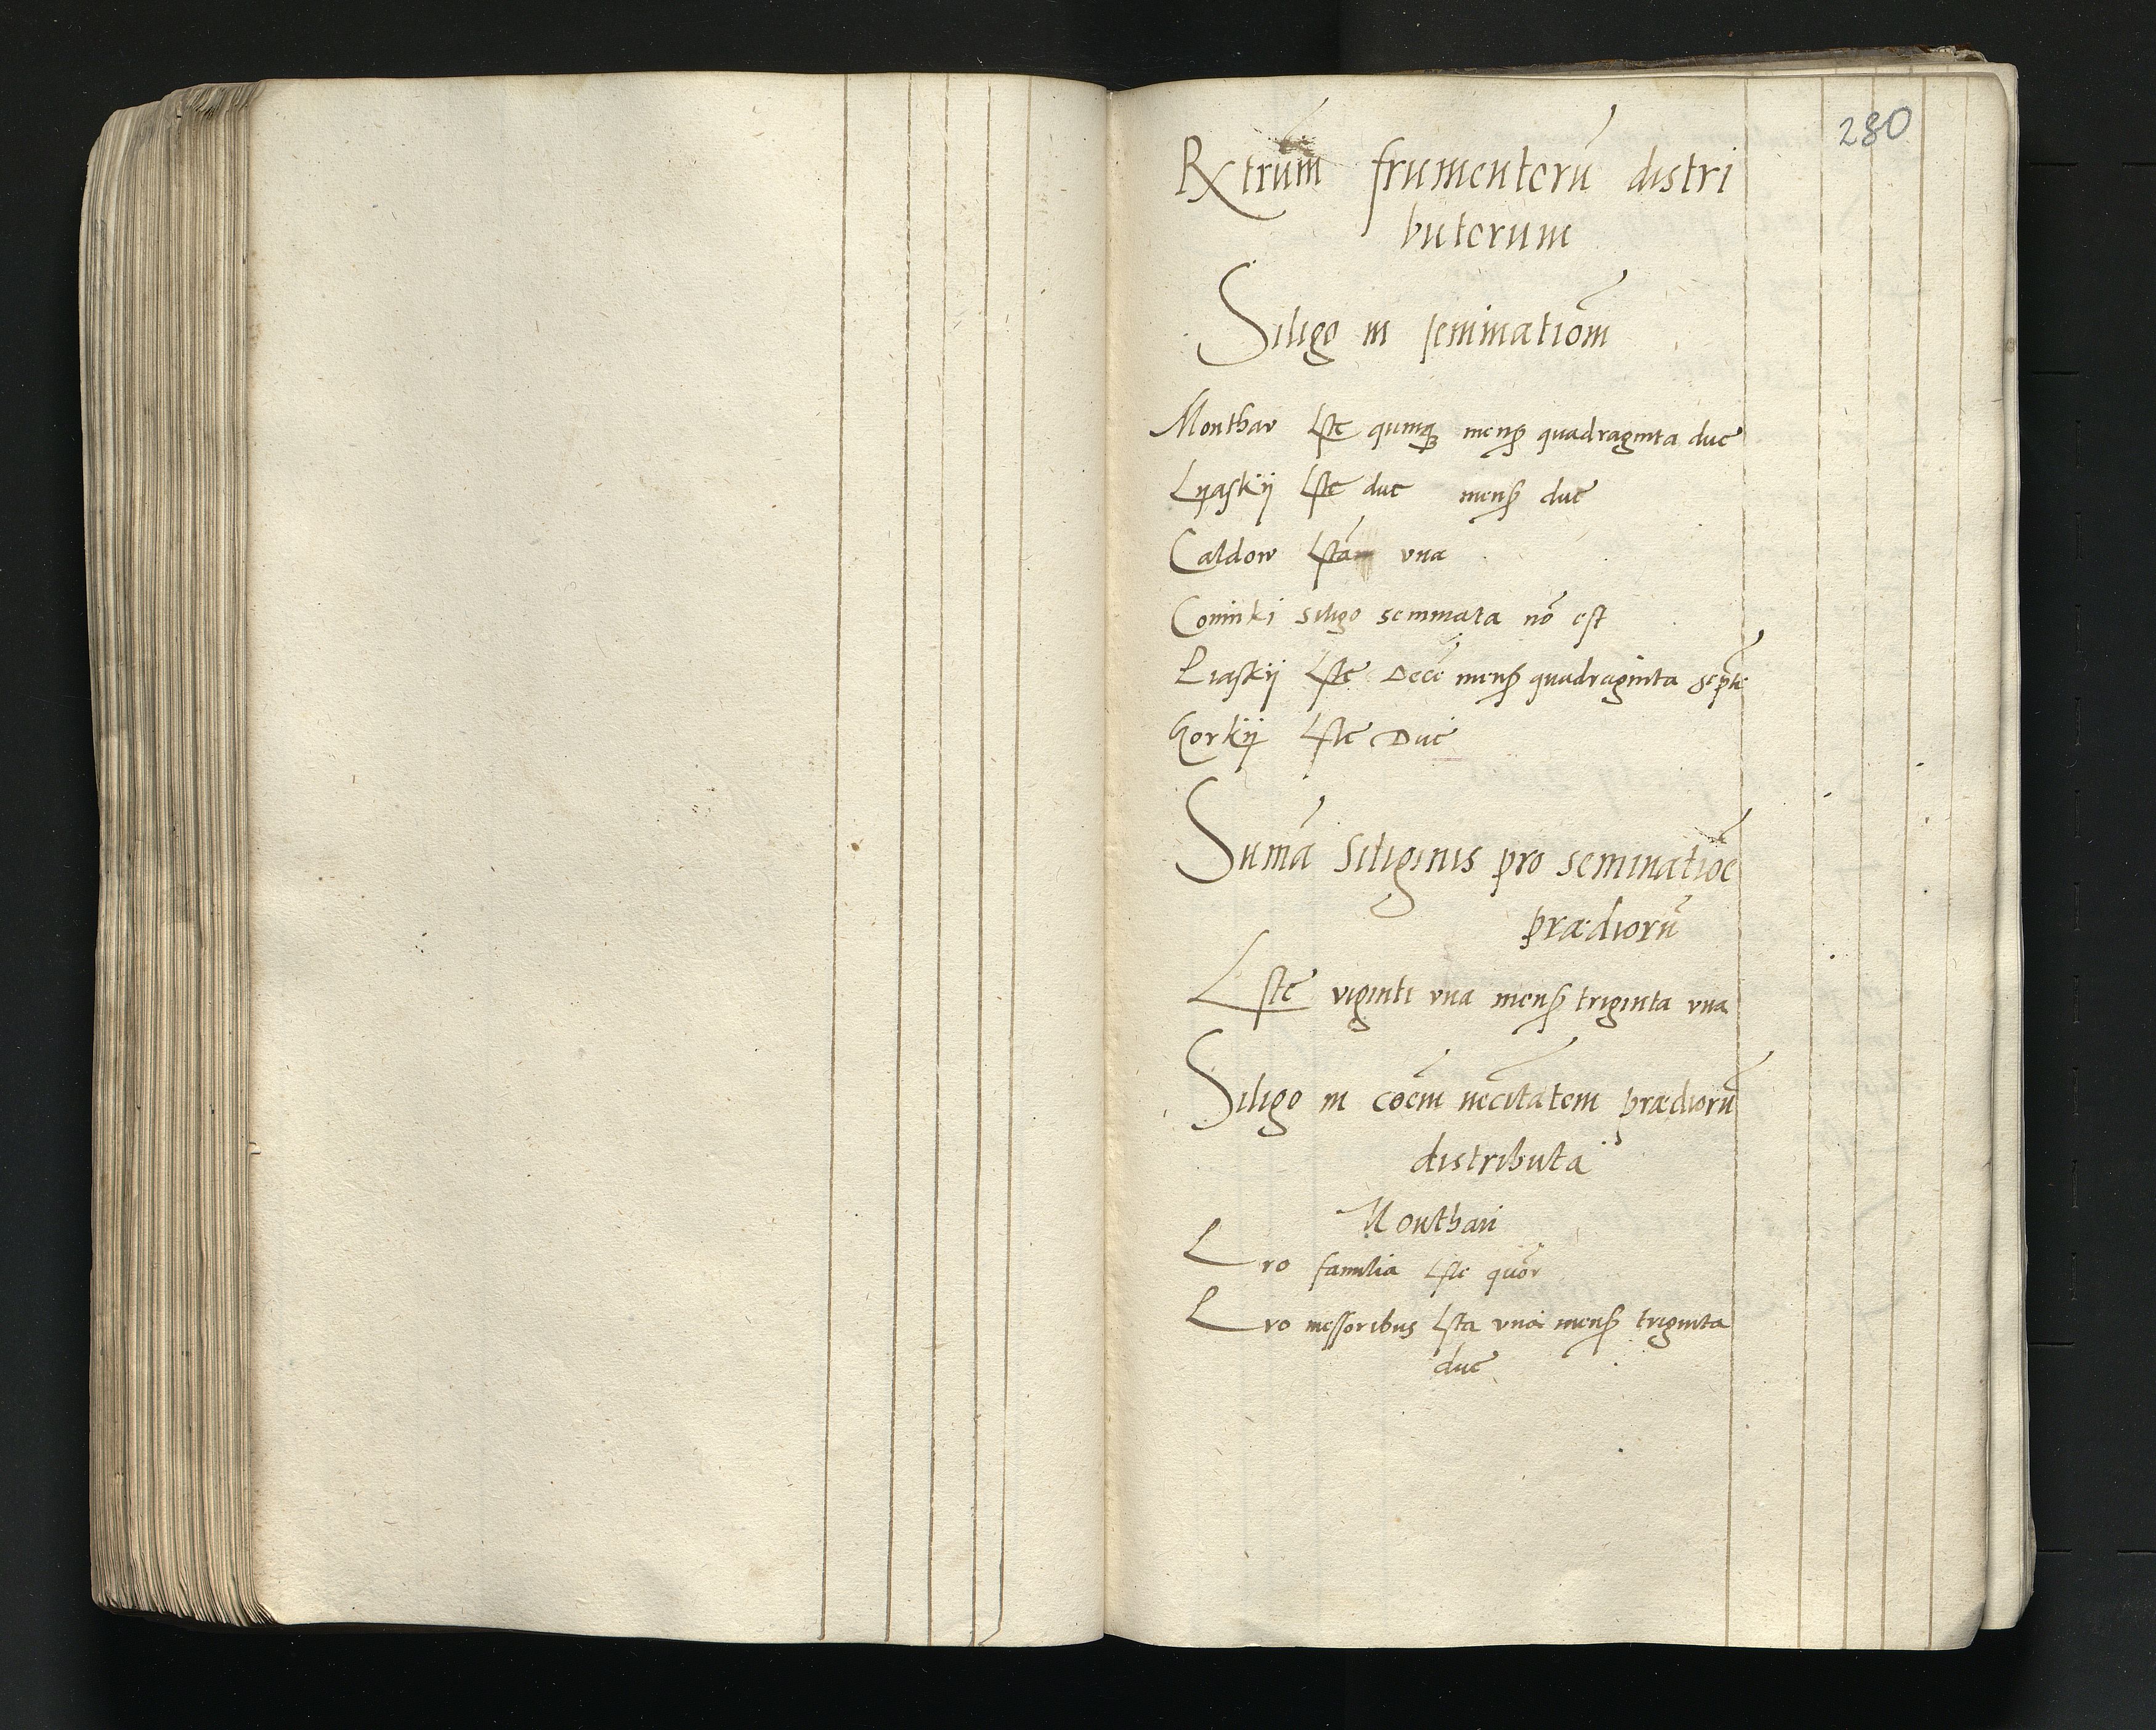 280
Rxtrum frumentorũ distri
butorum
Siligo in seminatiom̃
Monthav Lste quinq mens quadraginta due
Lyaskij Lste due mens due
Caldow Lsta una
Coninki siligo seminata nõ est
Piaskij Lste Decẽ mens quadraginta septẽ
Gorkij Lste Due
Sumã Siliginis pro seminatiõe
prædiorũ
Lste viginti vna mens triginta vna
Siligo in cõem necitatem prædiorũ
distributa
Monthavi
Pro familia Lste quõr
Pro messoribus Lsta vna mens triginta
due